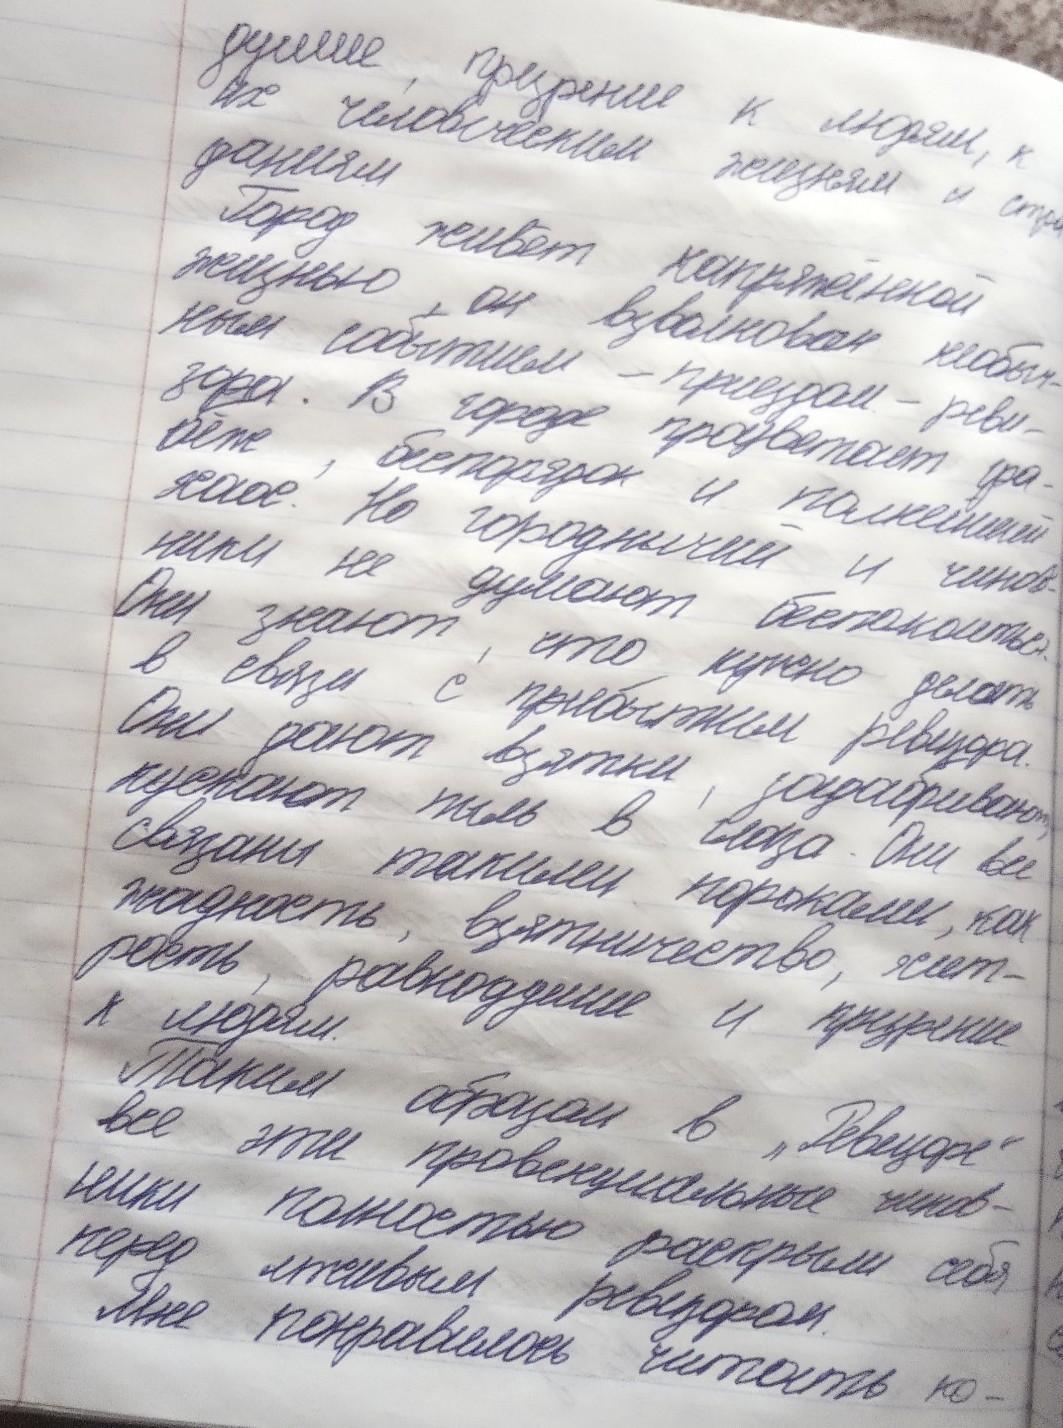 душие, презрение к людям, к
их человеческим жизням и стра
даниям
Город живёт напряжённой
жизнью, он взволнован необыч-
ным событием - приездом - реви-
зора. В городе процветает гра-
бёж, беспорядок и полнейший
хаос. Но городничий и чинов-
ники не думают беспокоиться.
Они знают, что нужно делать
в связи с прибытием ревизора.
Они дают взятки, задабривают,
пускают пыль в глаза. Они все
связаны такими пороками, как
жадность, взятничество, хит-
рость, равнодушие и презрение
к людям.
Таким образом в „Ревизоре“
все эти провенциальные чинов-
ники полностью раскрыли себя
перед лживым ревизором.
Мне понравилось читать ко-